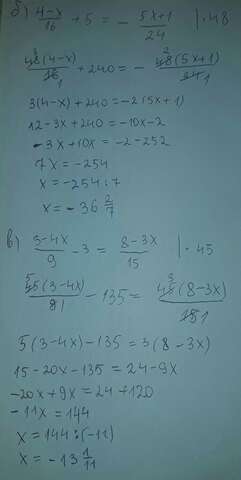 б) (4-x)/16 + 5 = - (5x+1)/24 | · 48
48³(4-x)/16₁ + 240 = - 48²(5x+1)/24₁
3(4-x)+240=-2(5x+1)
12-3x+240=-10x-2
-3x+10x=-2-252
7x=-254
x=-254:7
x=-36 2/7
в) (3-4x)/9 - 3 = (8-3x)/15 | · 45
45⁵(3-4x)/9₁ - 135 = 45³(8-3x)/15₁
5(3-4x)-135=3(8-3x)
15-20x-135=24-9x
-20x+9x=24+120
-11x=144
x=144:(-11)
x=-13 1/11